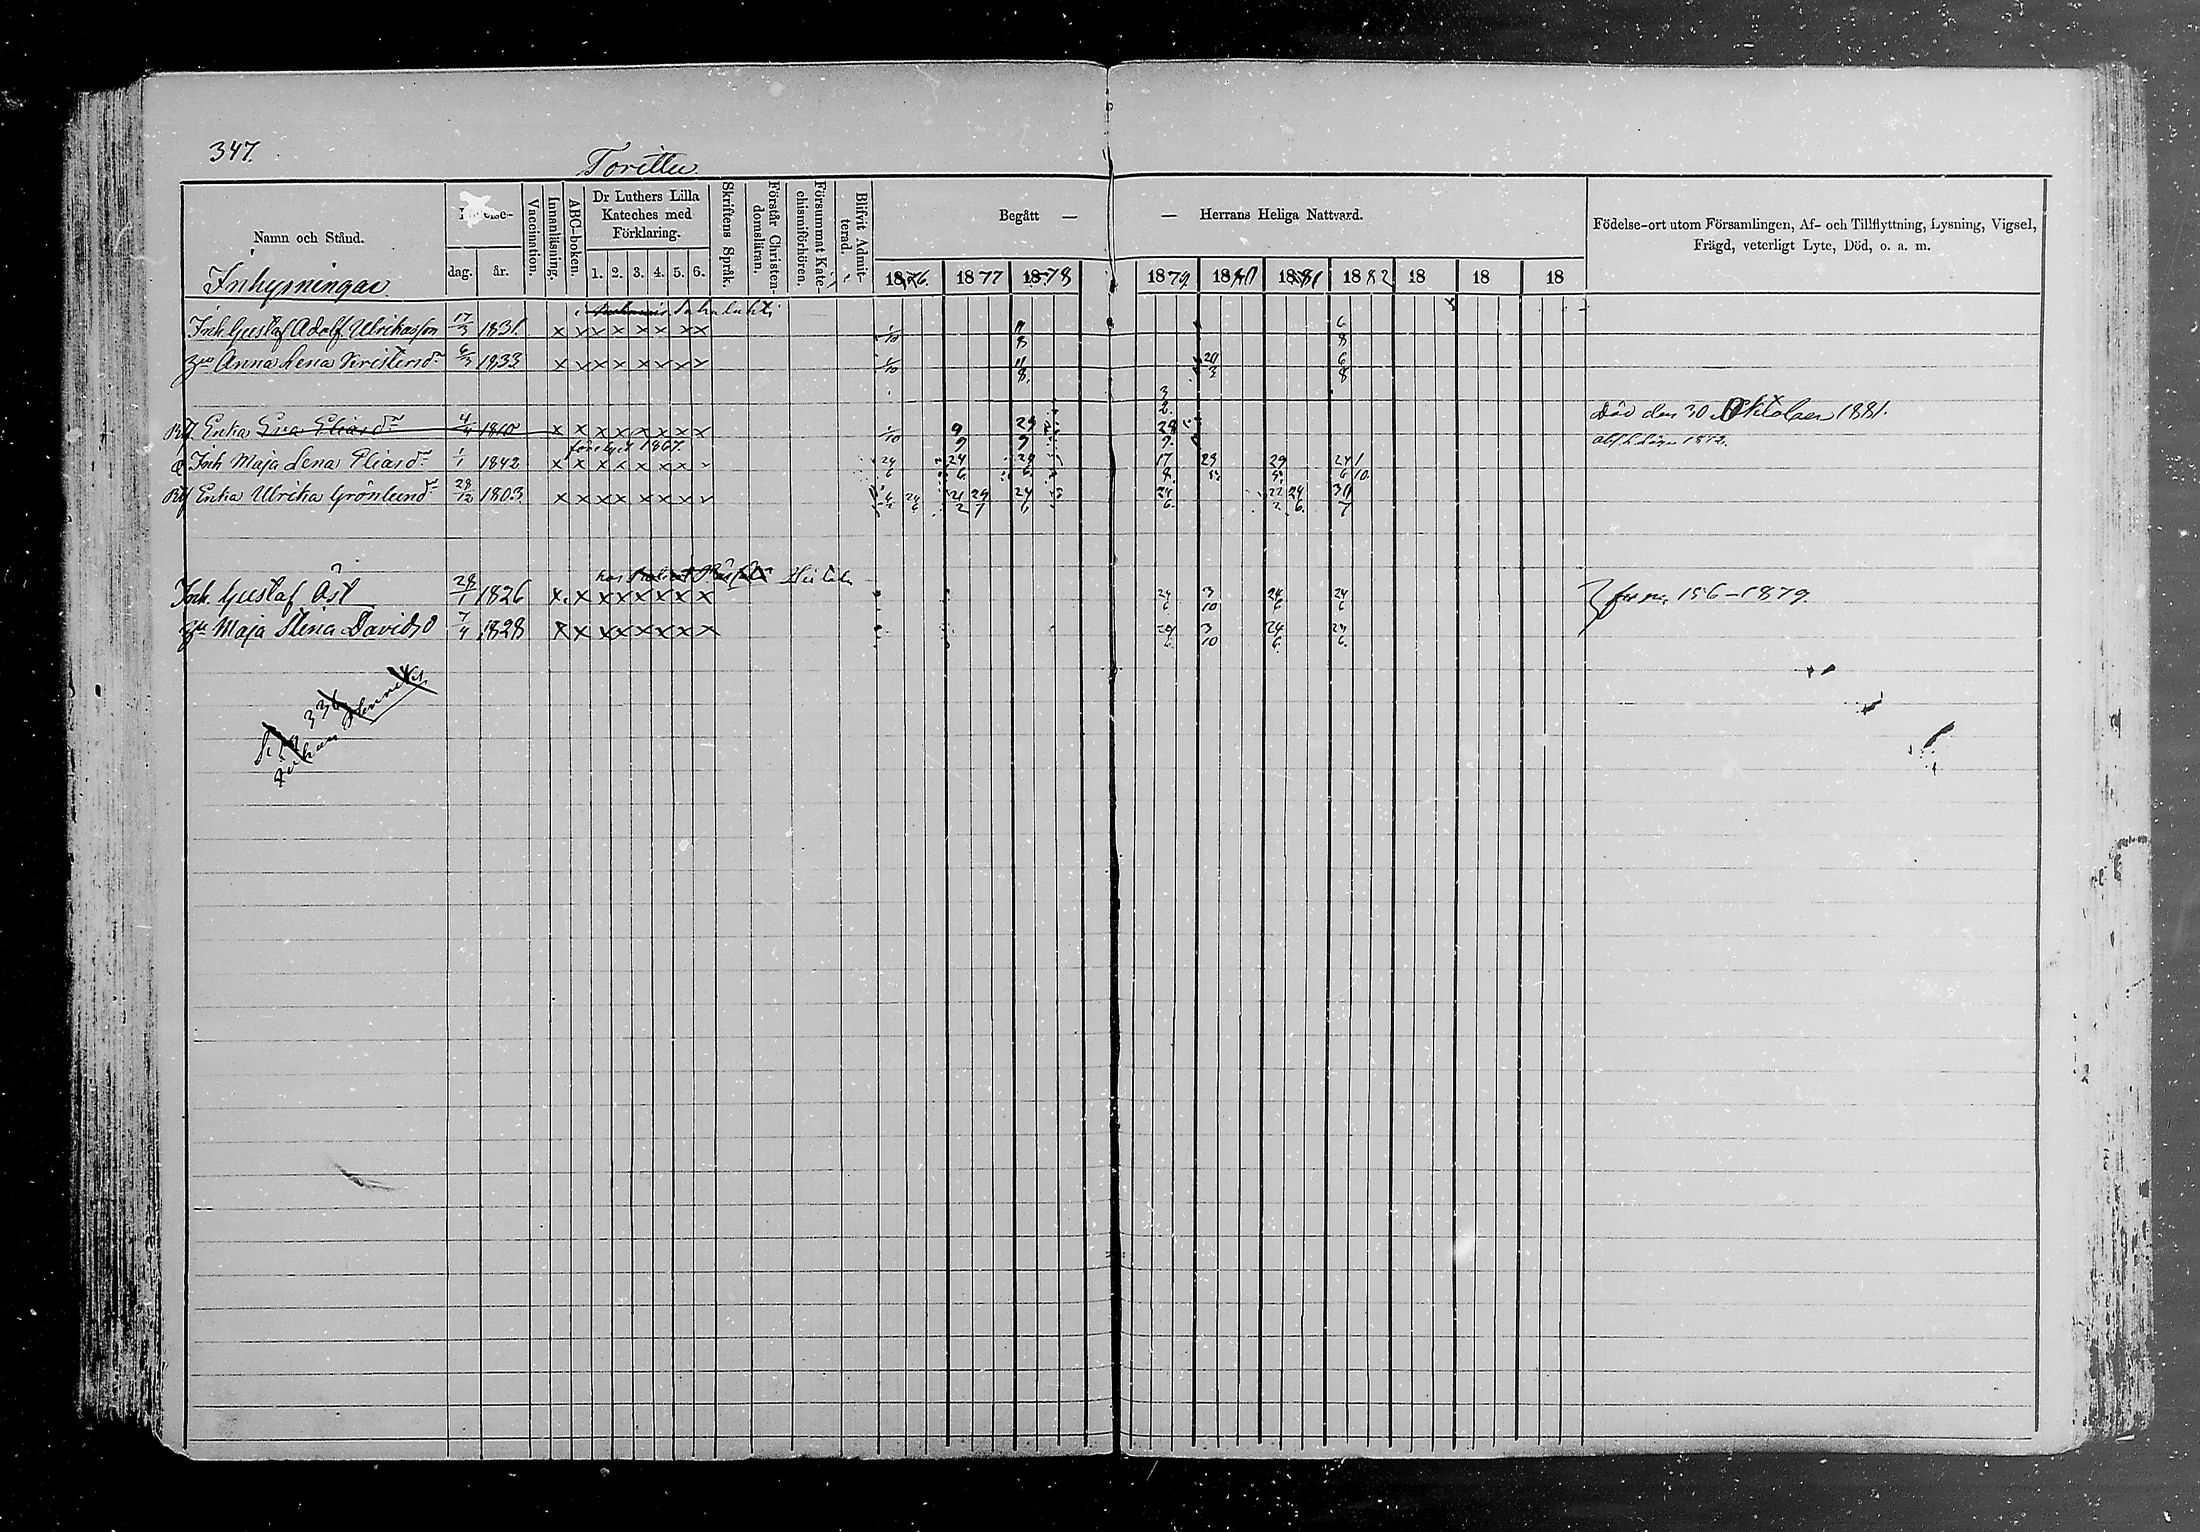 347.
Torittu
Namn och Stånd.
dag. år.
Vaccination.
Innanläsning.
ABC-boken.
Dr Luthers Lilla Kateches med Förklaring.
1. 2. 3. 4. 5. 6.
Skriftens Språk.
Förstår Christendomsläran.
Försummat Katechismiförhören.
Blifvit Admitterad.
Begått — — Herrans Heliga Nattvard.
1876. 1877 1878 1879. 1880 1881 1882 18 18 18
Födelse-ort utom Församlingen, Af- och Tillflyttning, Lysning, Vigsel, Frägd, veterligt Lyte, Död, o. a. m.
Inhysningar
Inh. Gustaf Adolf Ulrikasson 17/3 1831. x x x x x x x x 1/10 11/8 6/8
Anna Lena 6/3 1833 x x x x x x x x 1/10 11/8. 20/3 6/8
3/2.
Enka Eva Eliasdr 4/4 1810 x x x x x x x x 1/10 9/9 29/9 28/9. Död den 30 Oktober 1881.
1867.
Inh Maja Lena Eliasdr 1/1 1842 x x x x x x x x 24/6 24/6 24/6 17/8. 29/5 24/6 1/10.
Enka Ulrika Grönlund 28/12 1803. x x x x x x x x 24/6 21/2 29/7 24/6 24/6 22/2 24/6. 30/7
hos
Inh. Gustaf Öst 28/1 1826 x x x x x x x x 24/6 3/10 24/6 24/6 156–1879.
Maja Stina Davidsd 7/4 1828 x x x x x x x x 24/6 3/10 24/6 24/6.